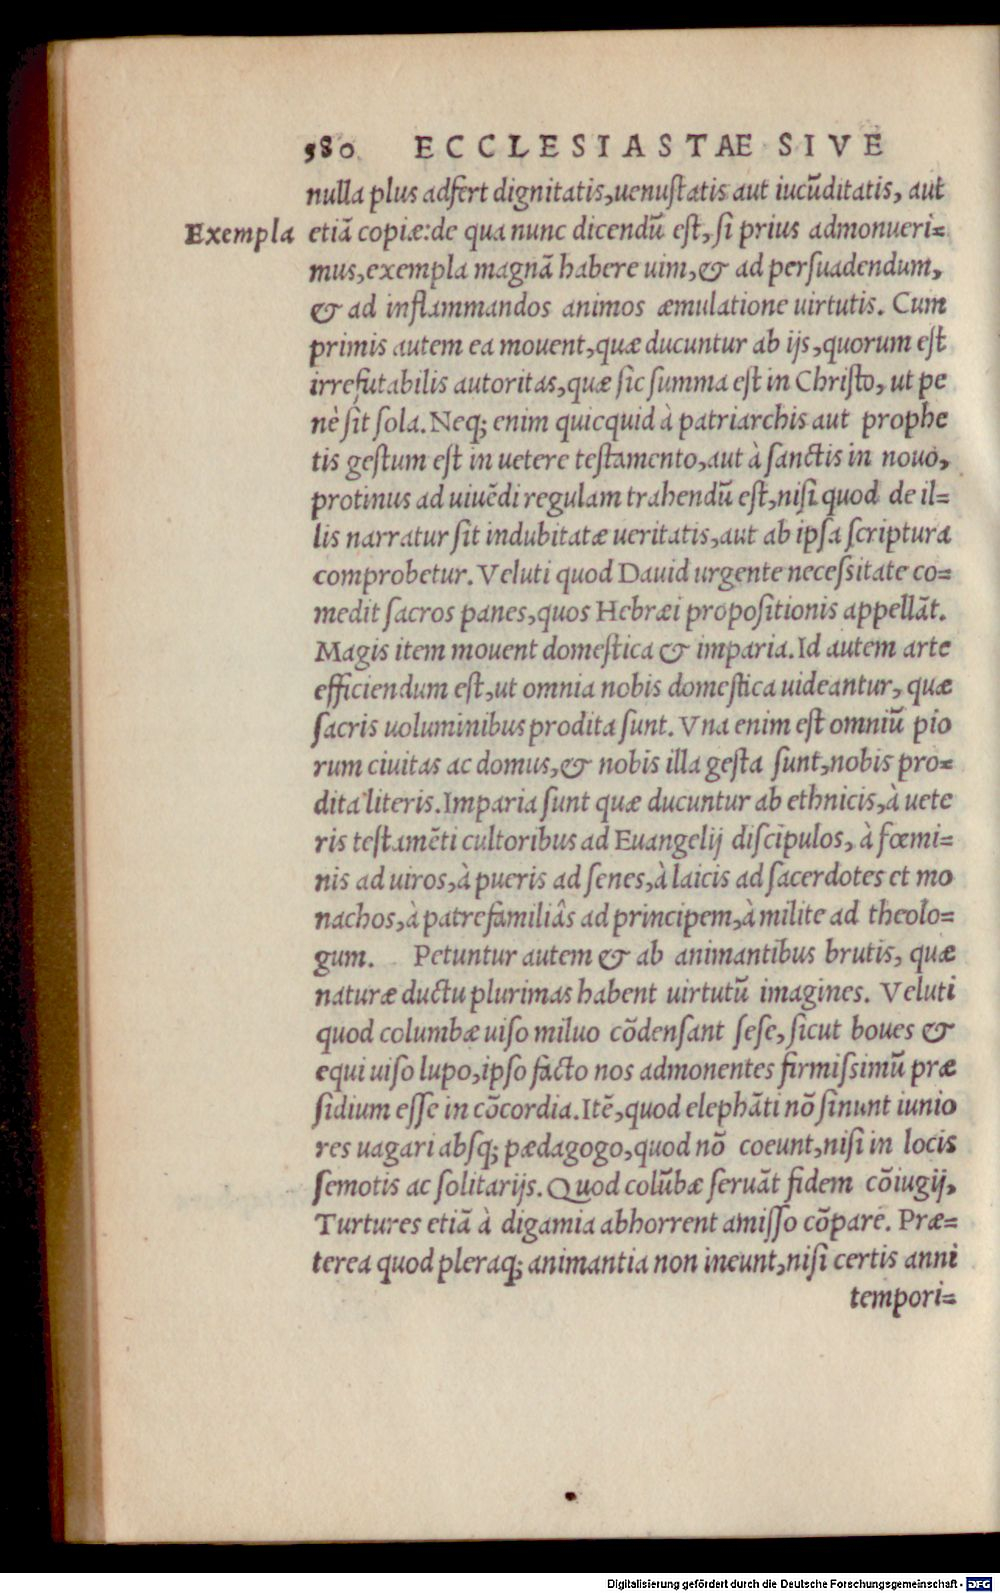 580 ECCLESIASTAE SIVE
nulla plus adfert dignitatis, uenustatis aut iucũditatis, aut
Exempla
etiã copiæ: de qua nunc dicendũ est, si prius admonueri=
mus, exempla magnã habere uim, & ad persuadendum,
& ad inflammandos animos æmulatione uirtutis. Cum
primis autem ea mouent, quæ ducuntur ab ijs, quorum est
irrefutabilis autoritas, quæ sic summa est in Christo, ut pe
nè sit sola. Neq; enim quicquid à patriarchis aut prophe
tis gestum est in uetere testamento, aut à sanctis in nouo,
protinus ad uiuẽdi regulam trahendũ est, nisi quod de il=
lis narratur sit indubitatæ ueritatis, aut ab ipsa scriptura
comprobetur. Veluti quod Dauid urgente necessitate co=
medit sacros panes, quos Hebræi propositionis appellãt.
Magis item mouent domestica & imparia. Id autem arte
efficiendum est, ut omnia nobis domestica uideantur, quæ
sacris uoluminibus prodita sunt. Vna enim est omniũ pio
rum ciuitas ac domus, & nobis illa gesta sunt, nobis pro=
dita literis. Imparia sunt quæ ducuntur ab ethnicis, à uete
ris testamẽti cultoribus ad Euangelij discipulos, à fœmi=
nis ad uiros, à pueris ad senes, à laicis ad sacerdotes et mo
nachos, à patrefamiliâs ad principem, à milite ad theolo=
gum. Petuntur autem & ab animantibus brutis, quæ
naturæ ductu plurimas habent uirtutũ imagines. Veluti
quod columbæ uiso miluo cõdensant sese, sicut boues &
equi uiso lupo, ipso facto nos admonentes firmissimũ præ
sidium esse in cõcordia. Itẽ, quod elephãti nõ sinunt iunio
res uagari absq; pædagogo, quod nõ coeunt, nisi in locis
semotis ac solitarijs. Quod colũbæ seruãt fidem cõiugij,
Turtures etiã à digamia abhorrent amisso cõpare. Præ=
terea quod pleraq; animantia non ineunt, nisi certis anni
tempori=
Digitalisierung gefördert durch die Deutsche Forschungsgemeinschaft - DFG